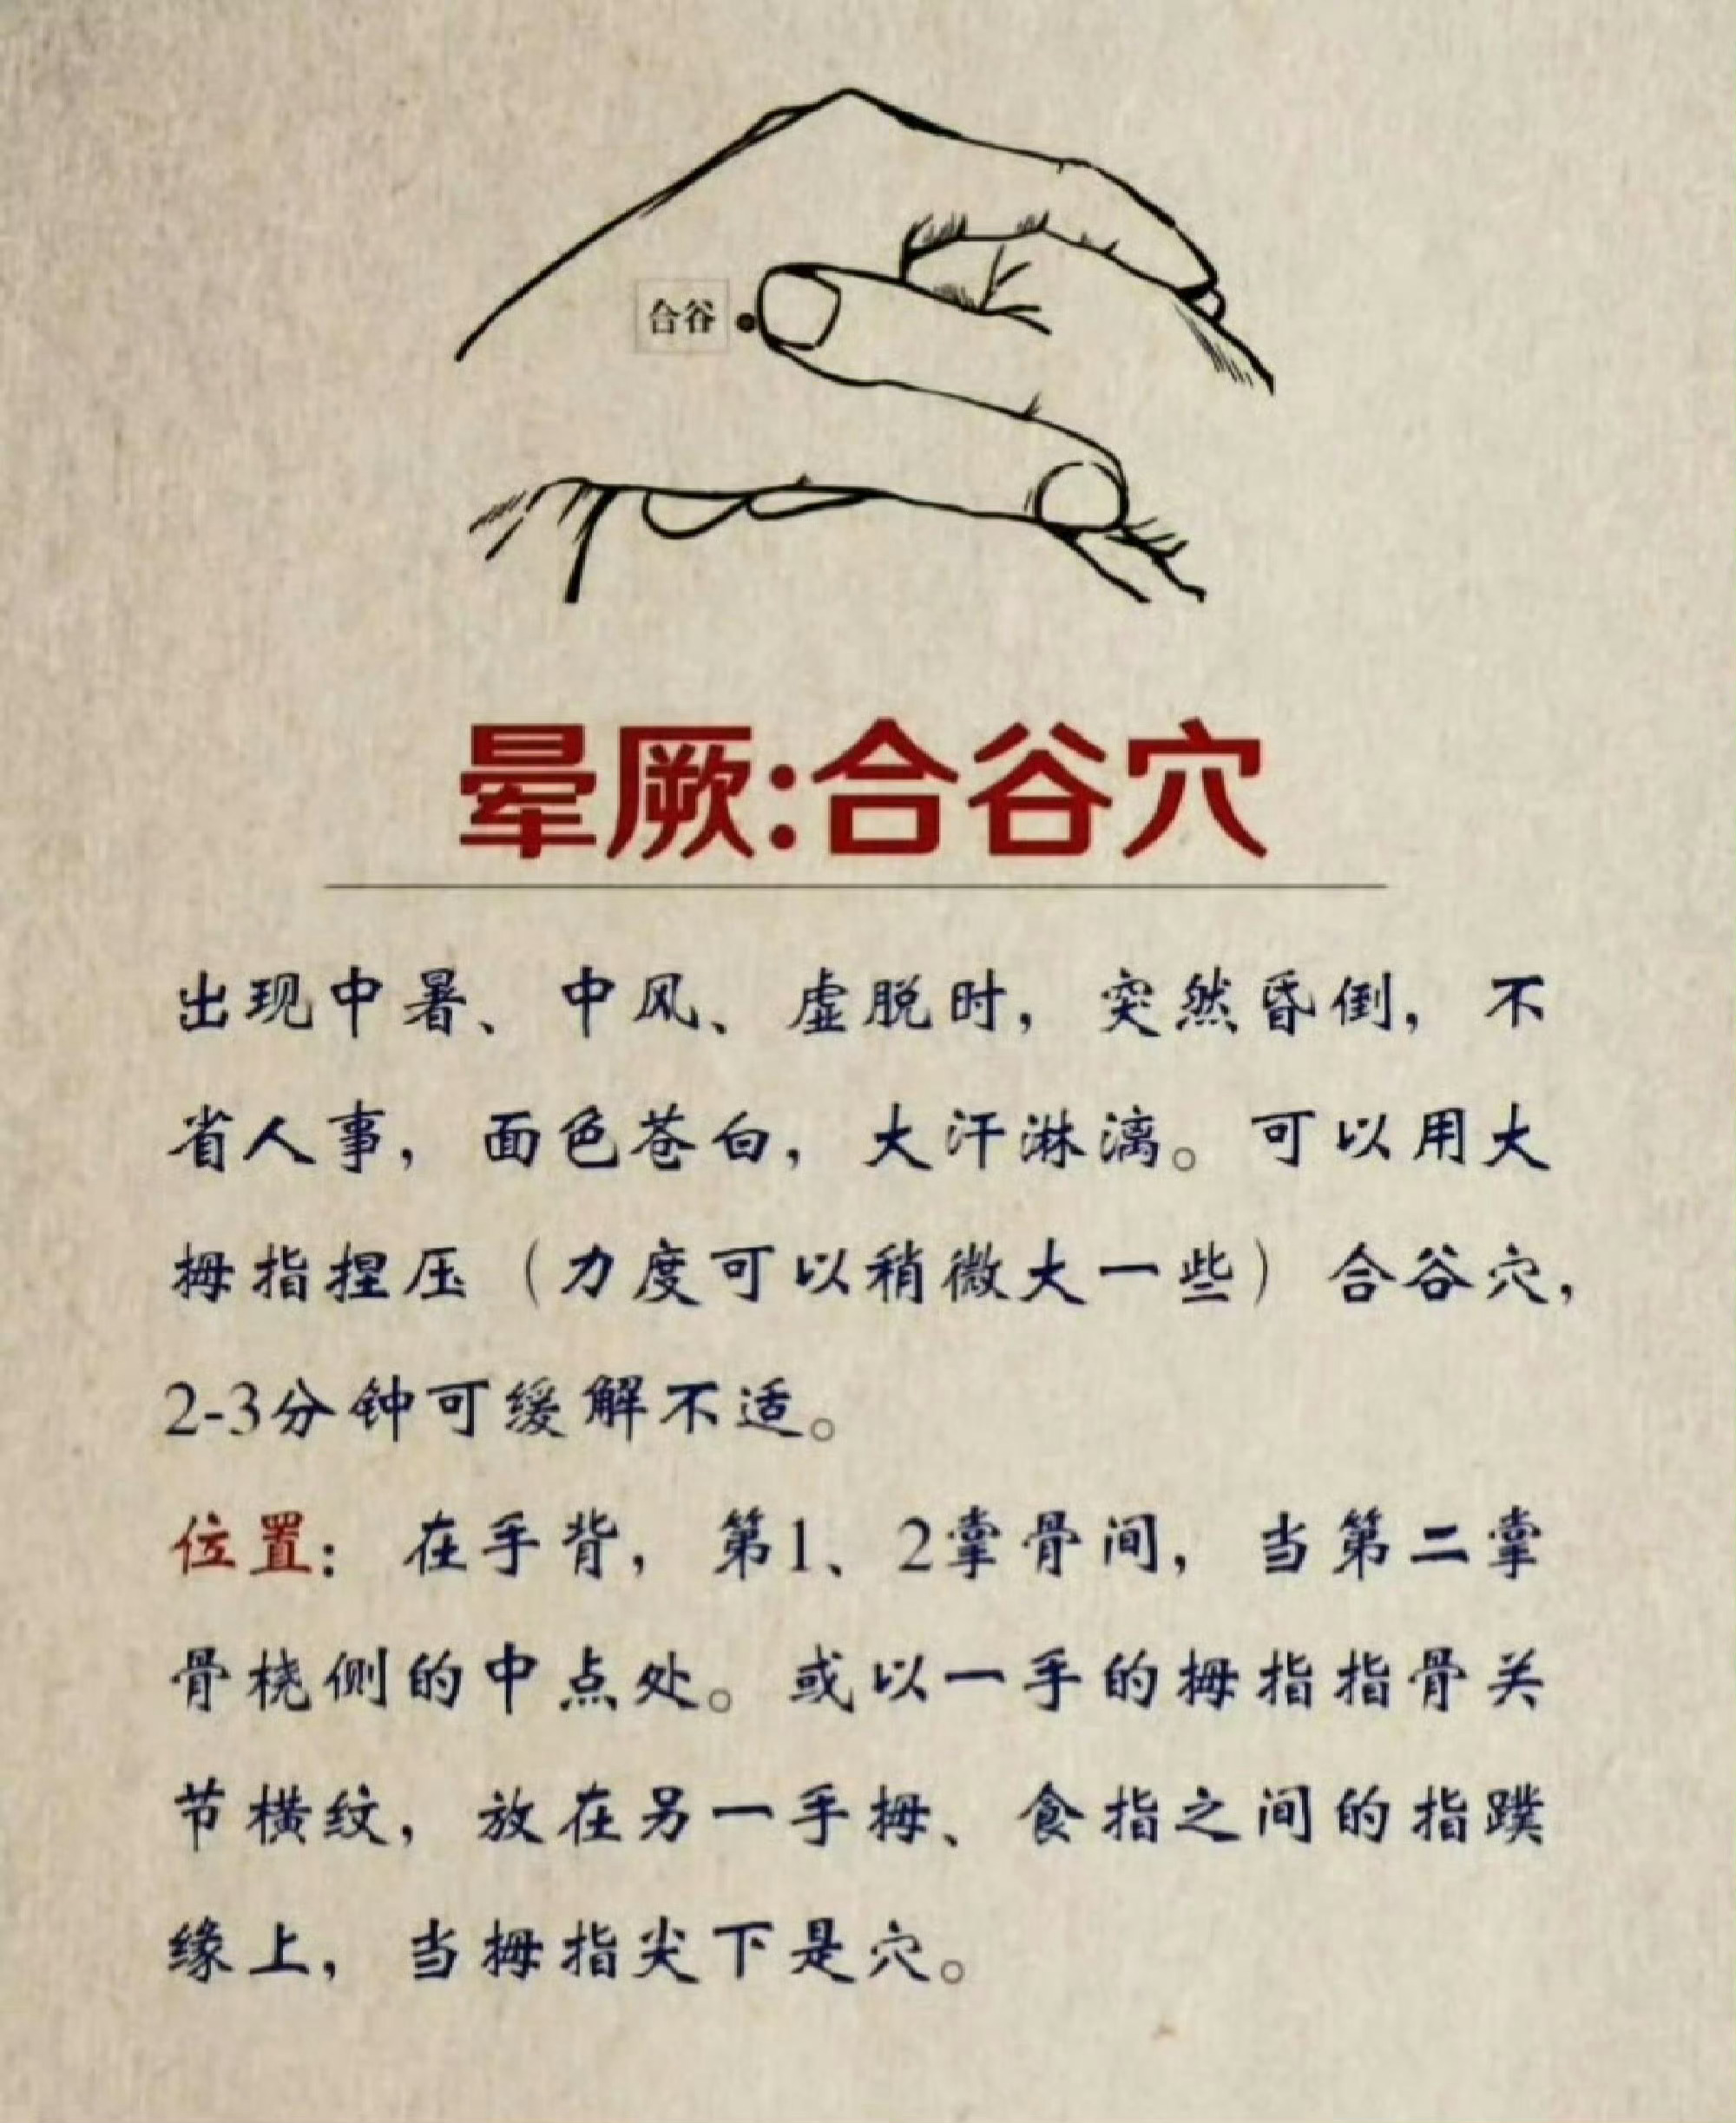 合谷
晕厥:合谷穴
出现中暑、中风、虚脱时，突然昏倒，不
省人事，面色苍白，大汗淋漓。可以用大
拇指捏压（力度可以稍微大一些）合谷穴，
2-3分钟可缓解不适。
位置：在手背，第1、2掌骨间，当第二掌
骨桡侧的中点处。或以一手的拇指指骨关
节横纹，放在另一手拇、食指之间的指蹼
缘上，当拇指尖下是穴。